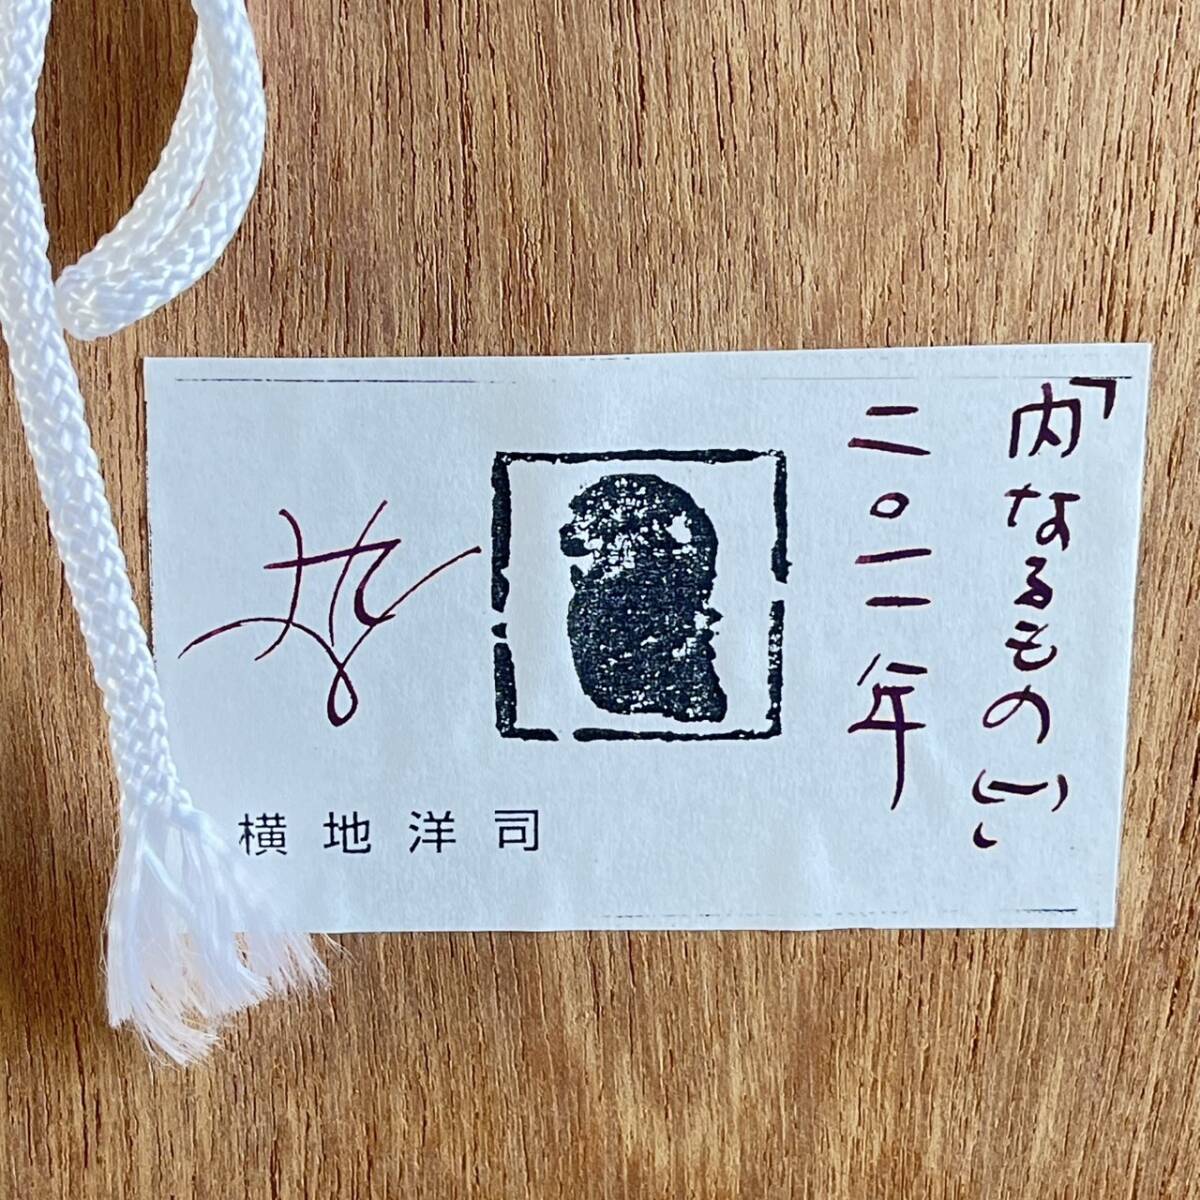 「内なるもの(一)」
二〇一一年
横地洋司